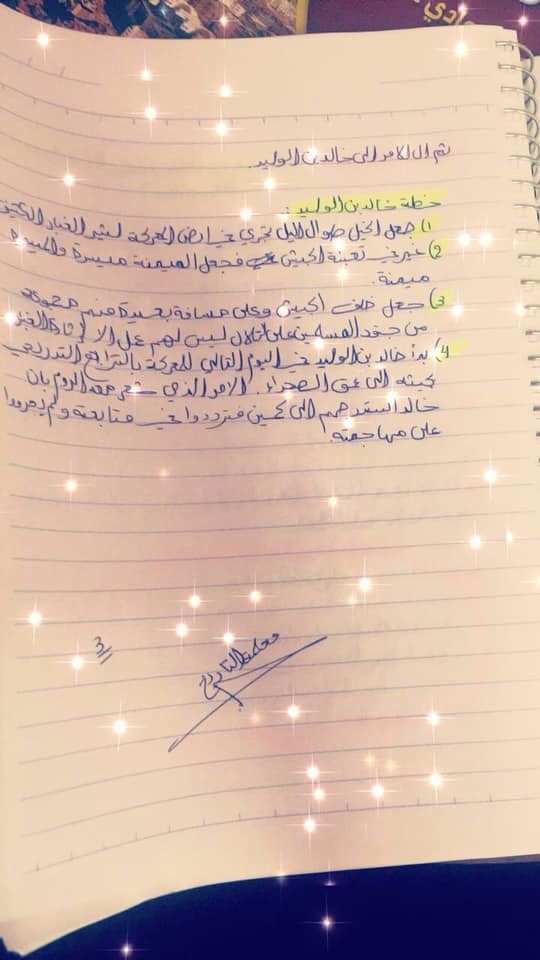 وادي
ثم آل الامر الى خالد بن الوليد.
خطة خالد بن الوليد :
1) جعل الخيل طوال الليل تجري في ارض المعركة لتثير الغبار الكثيف
2) غير في تعبئة الجيش فجعل الميمنة ميسرة والميسرة
ميمنة.
3) جعل خلف الجيش وعلى مسافة بعيدة منهم مجموعة
من جنود المسلمين على تلال ليس لهم عمل الا إثارة الغبار
4) بدأ خالد بن الوليد في اليوم التالي للمعركة بالتراجع التدريجي
بجيشه الى عمق الصحراء. الامر الذي شعر معه الروم بان
خالد استدرجهم الى كمين فترددوا في متابعته ولم يجرؤوا
على مهاجمته.
3
معلمة التاريخ